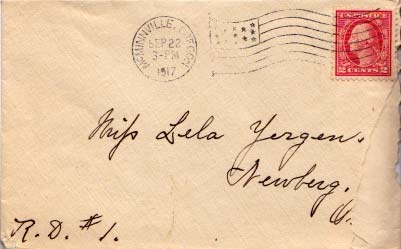 McMINNVILLE, OREGON
SEP 22
3-PM
1917
U.S. POSTAGE
2 CENTS 2
Miss Lela Yergen.
Newberg.
R.D. #1.